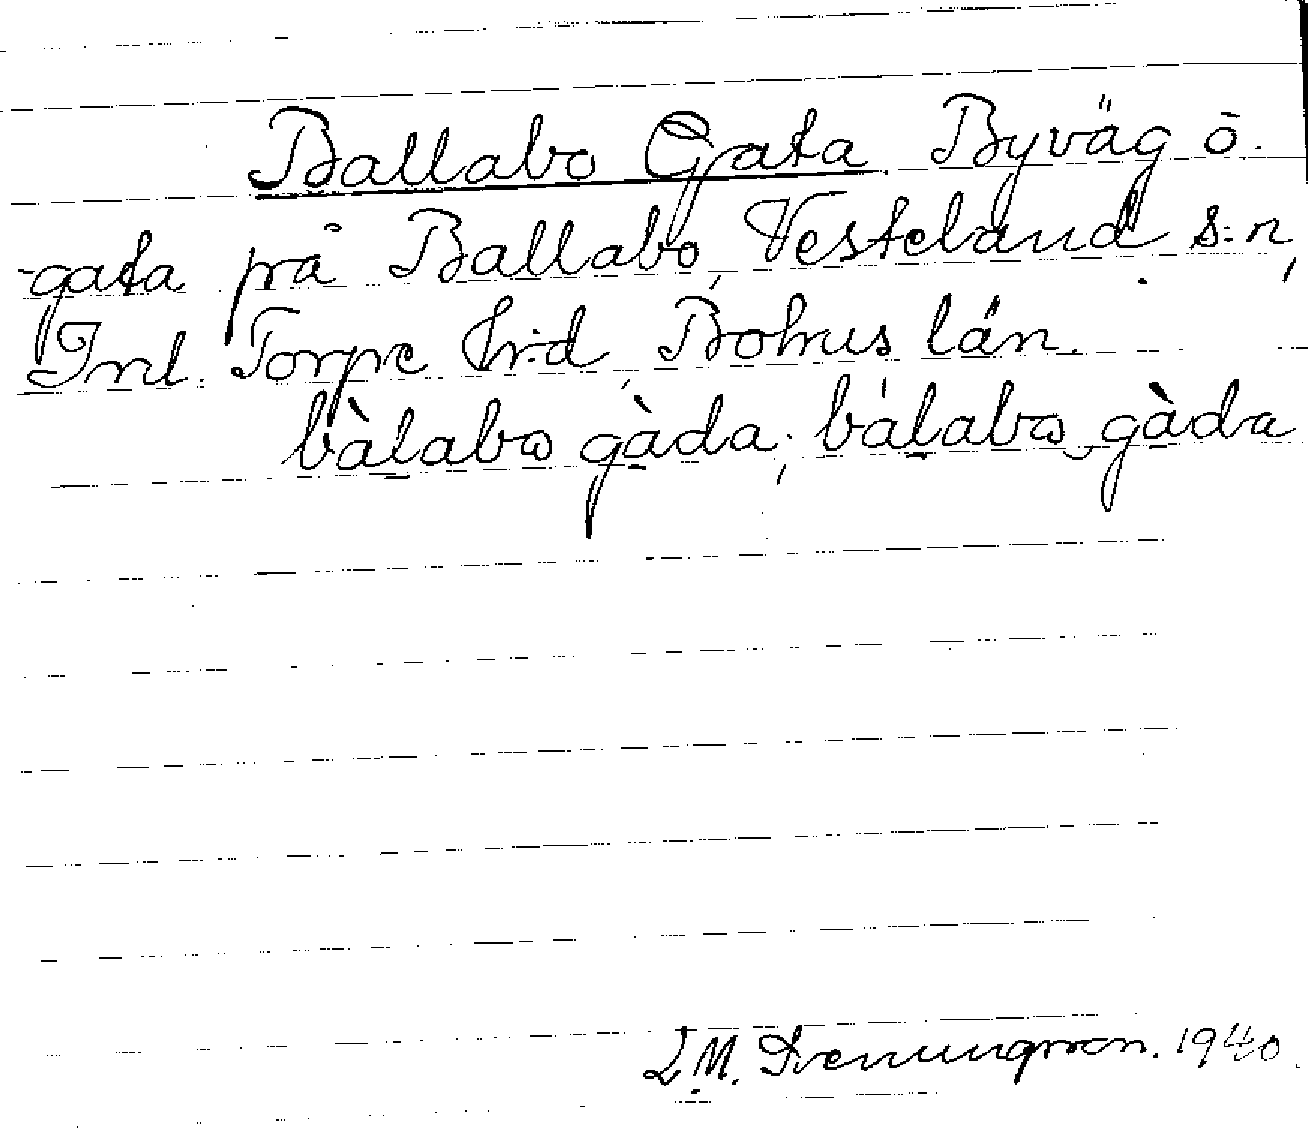 Ballabo Gata Byväg ö.
gata på Ballabo, Vesteland s:n,
Inl. Torpe h:d, Bohus län.
bàlabω gàda; bálabω gàda
1940